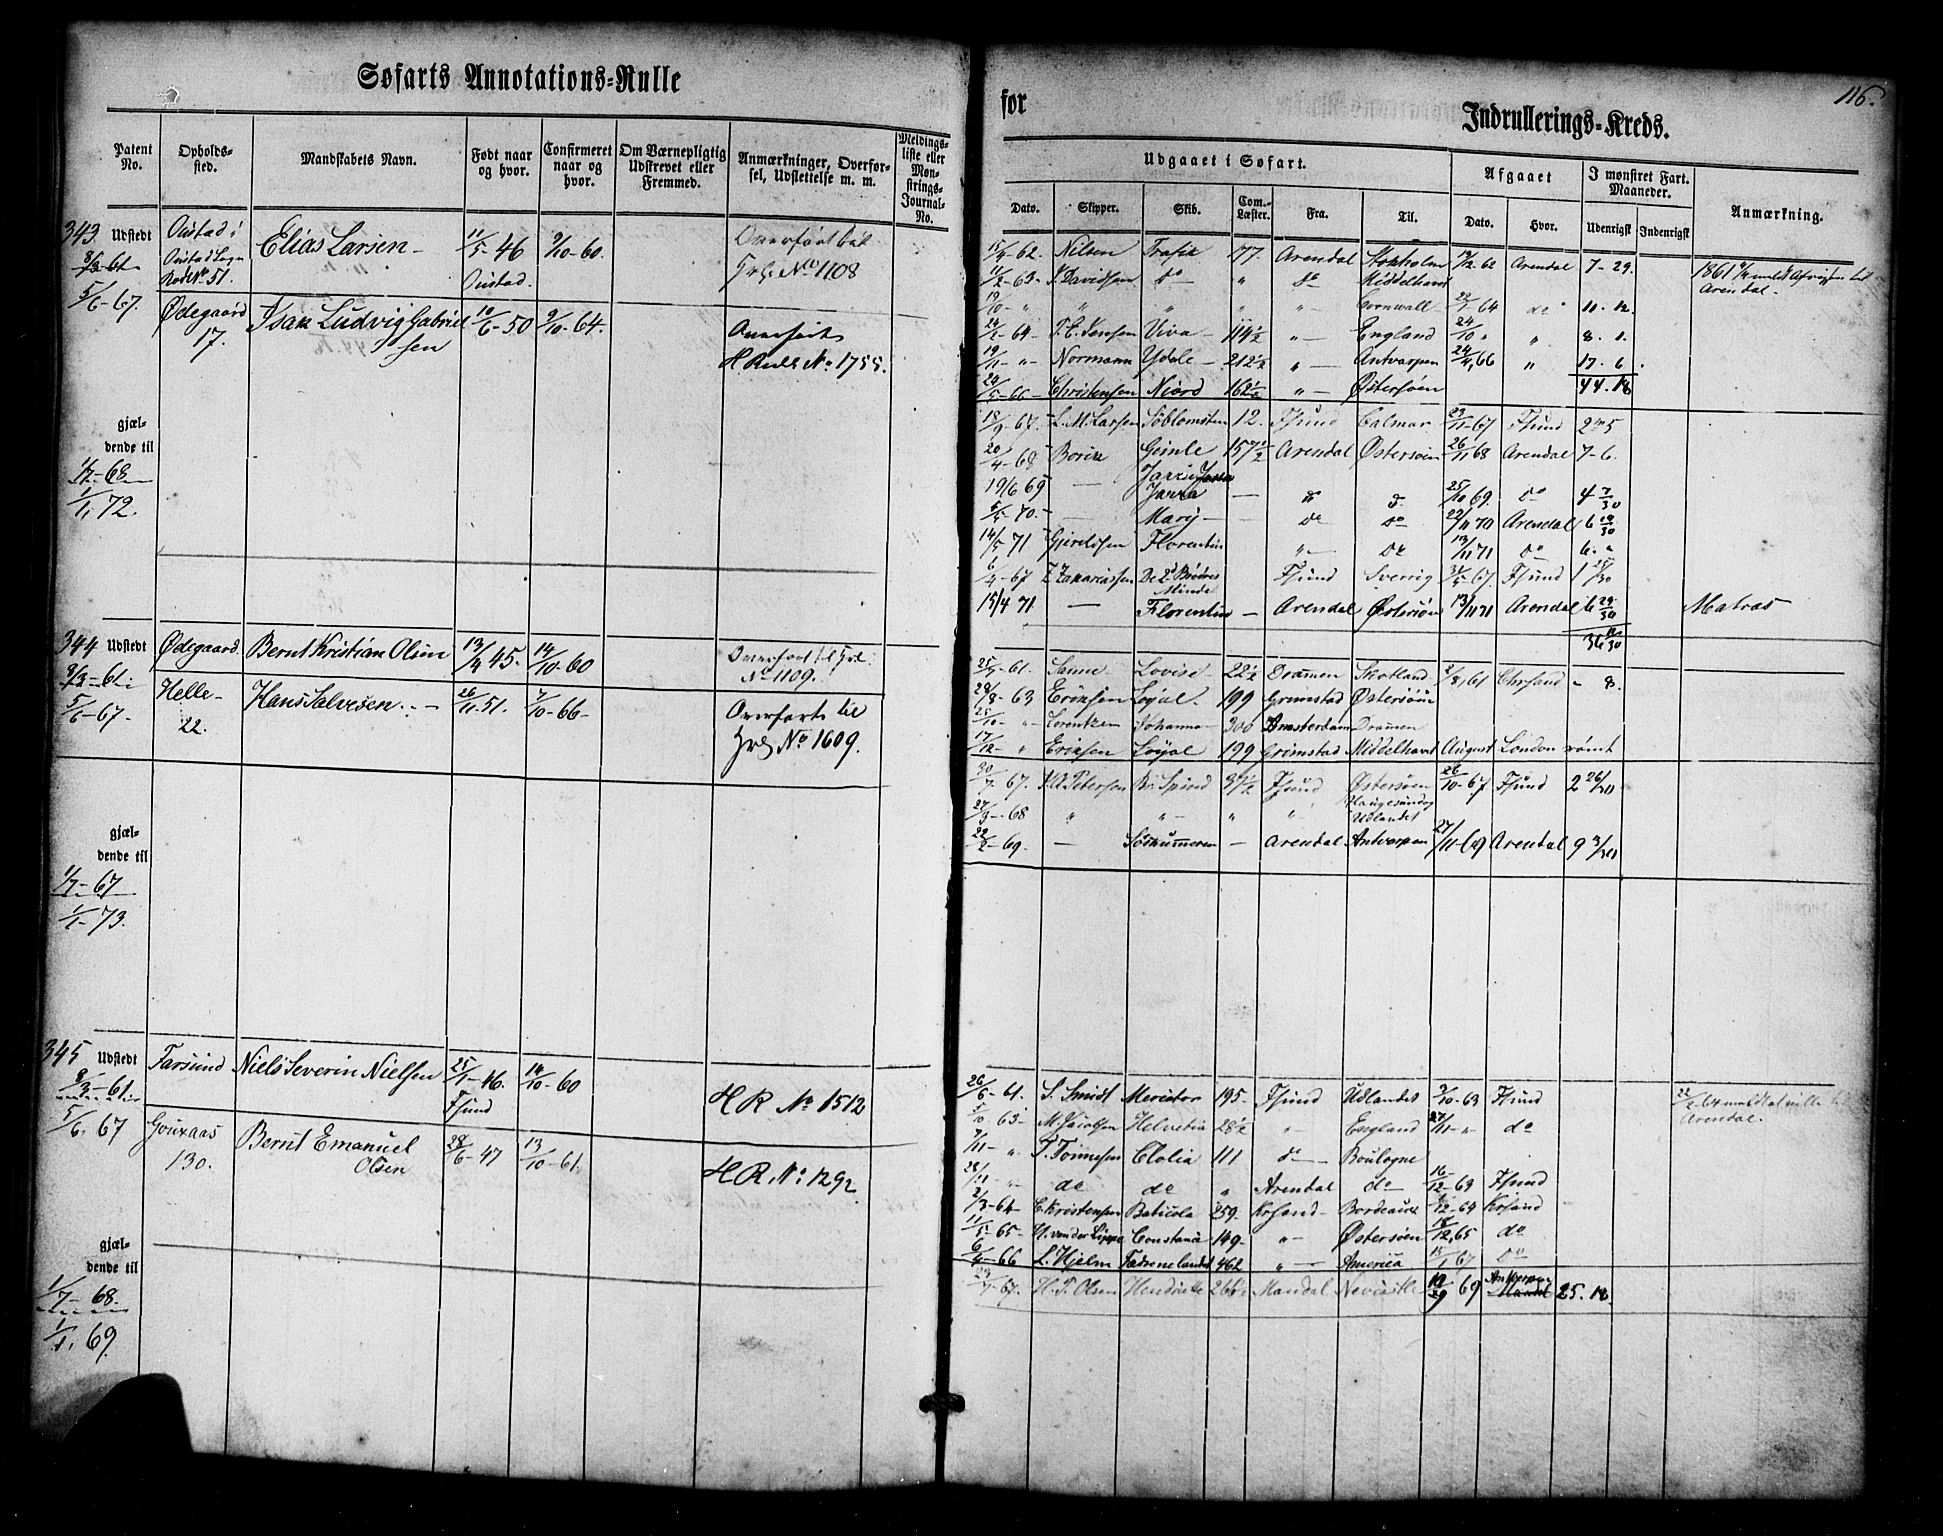 Søfarts Annotations-Rulle
for
Indrullerings-Kreds.
116.
Patent No.
Opholds-sted.
Mandskabets Navn.
Født naar og hvor.
Confirmeret naar og hvor.
Om Værnepligtig Udskrevet eller Fremmed.
Anmærkninger, Overførsel, Udslettelse m. m.
Meldings-liste eller Mønstrings-Journal-No.
Udgaaet i Søfart.
Afgaaet
I mønstret Fart. Maaneder.
Anmærkning.
Dato. Skipper. Skib. Com.-Læster. Fra. Til. Dato. Hvor. Udenrigsk Indenrigsk
343 Udstedt
8/3-61
5/6-67.
Oustad i
Oustad Sogn
Rode No 51.
Elias Larsen
11/5-46
Oustad.
9/10-60.
Overført til
No 1108
Ødegaard
17.
Isak Ludvig Gabriel
sen
10/6-50
9/10-64.
Overført
H Rulle No 1755.
gjæl-
dende til
1/7-68
1/1 72.
344 Udstedt
8/3-61
5/6-67.
Ødegaard.
Bernt Kristian Olsen
13/4 45.
14/10-60
Overført til
No 1109.
Helle-
22.
Hans Salvesen
26/11-51.
7/10-66-
Overført til
No 1609.
gjæl-
dende til
1/7-67
1/1-73.
345 Udstedt
8/3-61.
5/6. 67
Farsund
Niels Severin Nielsen
25/1-46.
Fsund
14/10-60
H R No 1512
130.
Bernt Emanuel
Olsen
28/6-47
13/10-61.
H R. No 1292
gjæl-
dende til
1/7-68.
1/1. 69.
15/4-62. Nilsen Trafik 77. Arendal Stokholm 19/12-62 Arendal 7-29.
11/2-63. J. Davidsen do " do Middelhavet
19/10- " " " " Cornwall 22/1 64 do 10. 12.
24/2-64- T. C. Jensen Viva 114 1/2 " England 24/10 " " 8. 1.
19/11 " Normann Ydale 212 1/2 " Antverpen 24/4, 66 " 17. 6.
24/5-66- Christensen Niord 162 1/2 " Østersøen 44. 18
18/9-67. L. M. Larsen Søblomsten 12. Fsund Calmar 23/11-67 Fsund 2 m 5
20/4-68 Gimle 157 1/2 Arendal Østersøen 26/11 68 Arendal 7-6.
19/6 69 — Jarra — do do 25/10 69. do 4 7/30
5/5-70. — Mary — do do 22/11 70 Arendal 6
14/5 71 Florentin " do 13/11 71 do 6. "
6/4-67 Z. Zakariassen De 2de Brødres Minde Fsund Sverrig 31/5-67. Fsund 1
15/4 71 — Florentin — Arendal Østersøen 13/11 71 Arendal 6 29/30
Matros
25/5-61. Sanne Lovise 22 1/2 Dramen Skotland 2/8, 61 Chrsand - 8.
28/8-63 Eriksen Lojal 199 Grimstad Østersøen
25/10- " Lorentzen Johanna 300 Amsterdam Dramen
17/12- " Eriksen Lojal 199 Grimstad Middelhavet August London rømt
30/7-67. Fsund Østersøen 26/10-67 Fsund 2 26/30
27/3-68 " " " " Haugesund og Udlandet
22/2-69. — Søskummeren — Arendal Antverpen 27/11-69 Arendal 9 3/30
26/6-61. S. Smidt Mercator 195- Fsund Udlandet 3/10-63 Fsund
5/10 63- M. Jacobsen Helvetia 28 1/2 " England 27/11- " do
9/11- " T. Tønnesen Clolia 111 do Boulogne
28/11 " do do " Arendal do 16/12-63 Fsund
2/3-64- C. Kristensen Baticola 259. Krsand Bordeaux /12-64 Krsand
11/5-65- H. von der Lippe Constance 149- " Østersøen 18/12, 65 do
6/4-66 L. Hjelm Fædrenelandet 462 " America 15/1 67 do
23/7-67. H. T. Olsen Hendriette 266 1/2 Mandal Newcastle 69 Antverpen Mandal 25. 18
Arendal.